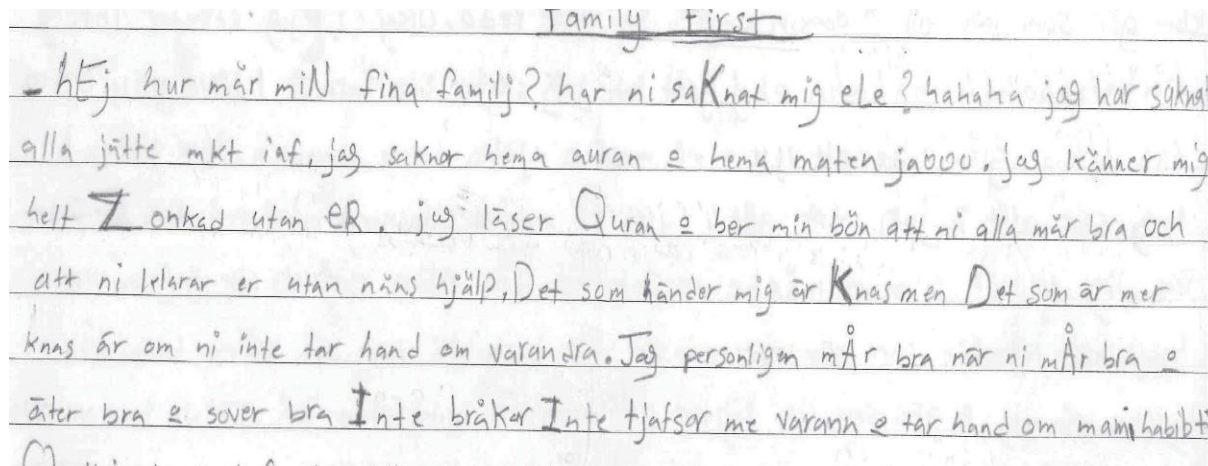 Family First
- hEj hur mår miN fina familj? har ni saKnat mig eLe? hahaha jag har saknat
alla jätte mkt iaf. jag saknar hema auran o hema maten jaooo. jag känner mig
helt Zonkad utan eR. jag läser Quran o ber min bön att ni alla mår bra och
att ni klarar er utan nåns hjälp. Det som händer mig är Knas men Det som är mer
knas är om ni inte tar hand om varandra. Jag personligen mÅr bra när ni mÅr bra o
äter bra o sover bra Inte bråkar Inte tjafsar me varann o tar hand om mami habibti